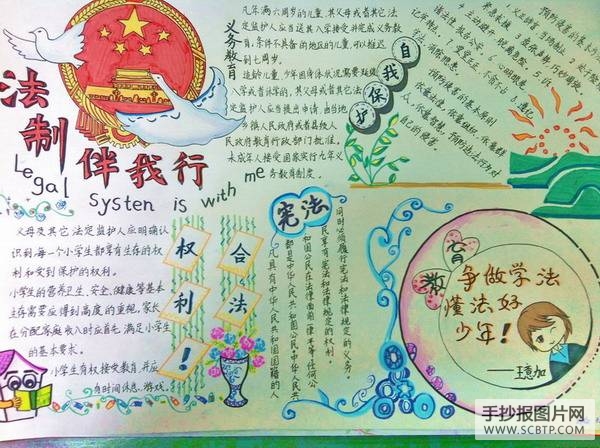 法制
伴我行
Legal
Systen is with me
义务教育
凡年满六周岁的儿童,其父母或者其它法
定监护人应当送其入学接受并完成义务教
育,条件不具备的地区的儿童,可以推迟
到七周岁。
适龄儿童、少年因身体状况需要延缓
入学或者休学的,其父母或者其它法
定监护人应当提出申请,由当地
乡镇人民政府或者县级人
民政府教育行政部门批准。
未成年人接受国家实行九年义
务教育制度。
自我保护
父母是其它法定监护人应明确认
识到,每一个小学生都享有生存的权
利和受到保护的权利。
小学生的营养卫生、安全、健康等基本
生存需要应得到高度的重视,家长
在分配家庭收入时应首先满足小学生
的基本要求。
小学生有权接受教育,并应
有时间休息、游戏。
合法
权利!
宪法
凡具有中华人民共和国国籍的人
都是中华人民共和国公民中华人民
共和国公民在法律面前一律平等任何公
民享有宪法和法律规定的权利,
同时必须履行宪法和法律规定的义务
教育
争做学法
懂法好
少年!
——王意加
手抄报图片网
WWW.SCBTP.COM